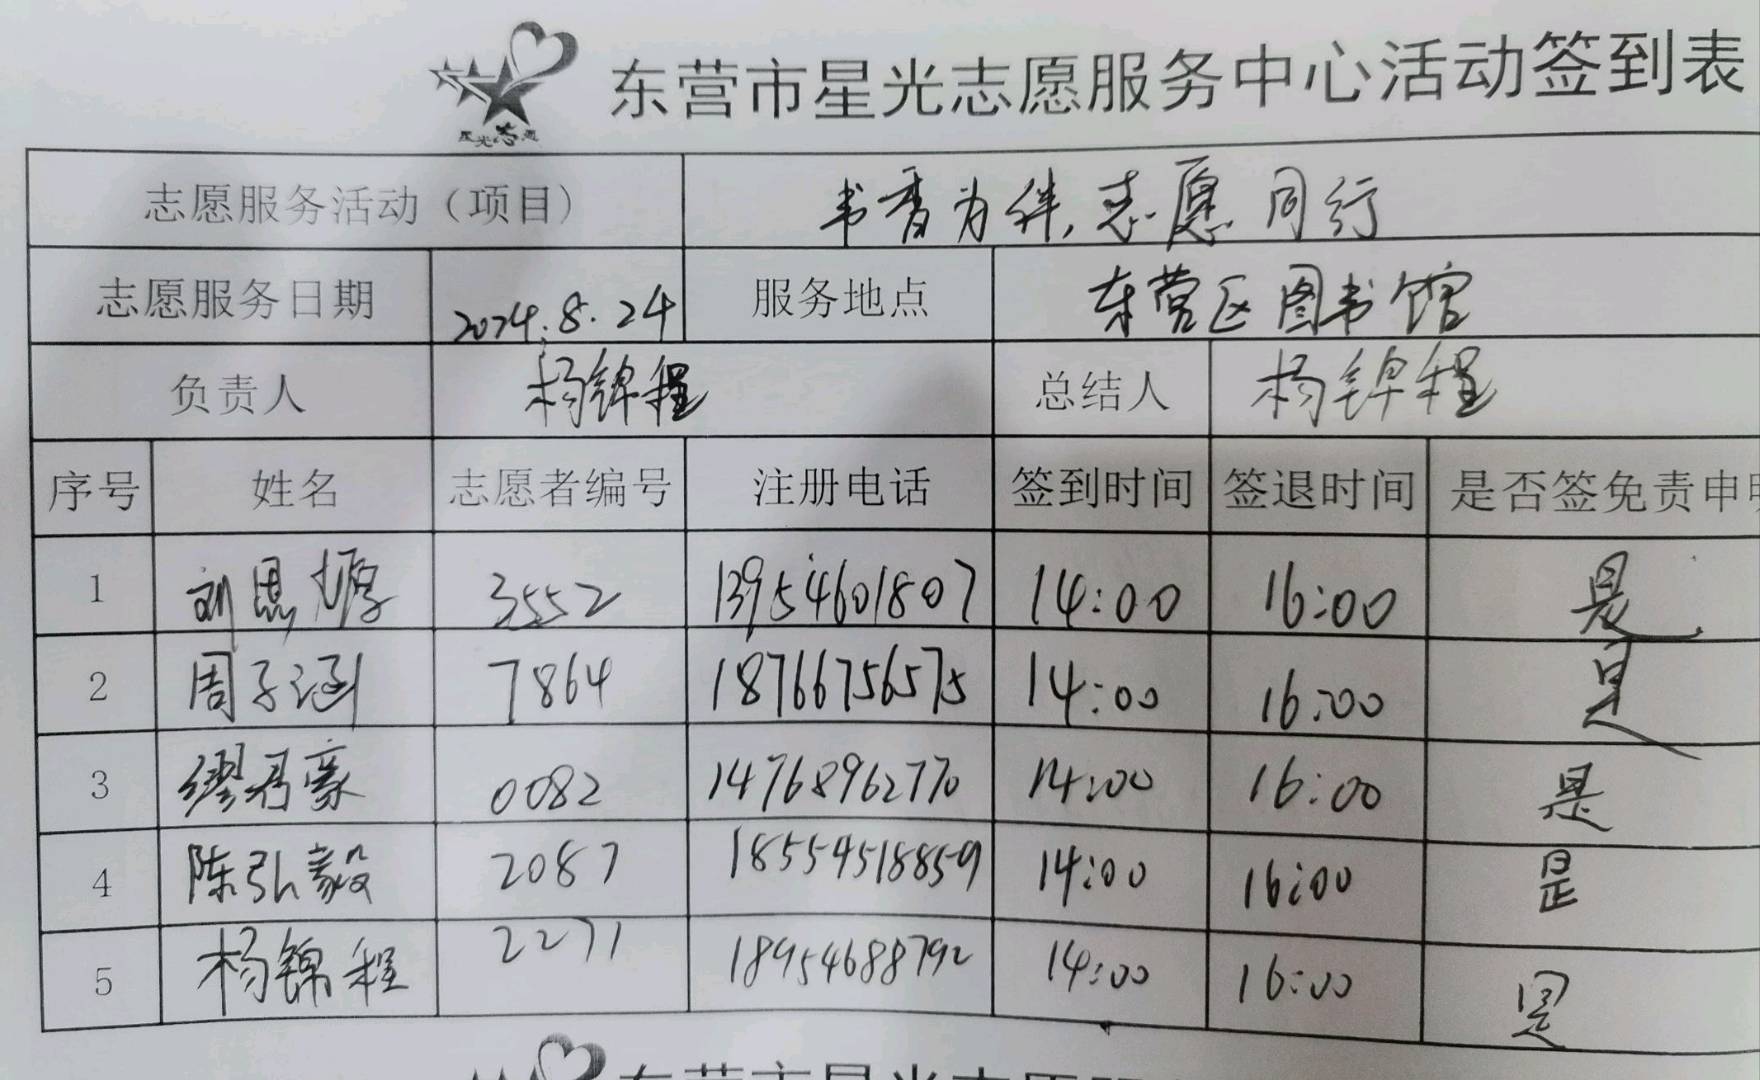 星光志愿
东营市星光志愿服务中心活动签到表
志愿服务活动（项目） 书香为伴，志愿同行
志愿服务日期 2024.8.24 服务地点 东营区图书馆
负责人 杨锦程 总结人 杨锦程
序号 姓名 志愿者编号 注册电话 签到时间 签退时间 是否签免责申
1 刘思源 3552 13954601807 14:00 16:00 是
2 周子涵 7864 18766756575 14:00 16:00 是
3 缪君豪 0082 14768962770 14:00 16:00 是
4 陈弘毅 2087 18554518859 14:00 16:00 是
5 杨锦程 2271 18954688792 14:00 16:00 是
东营市星光志愿服务